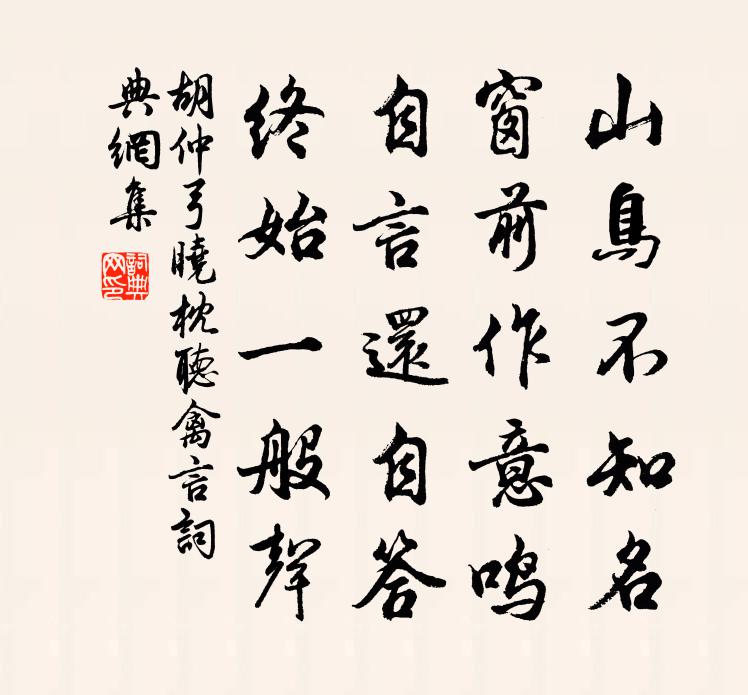 山鳥不知名
窗前作意鳴
自言還自答
終始一般聲
胡仲弓曉枕聽禽言詞
典網集
詞典
网印